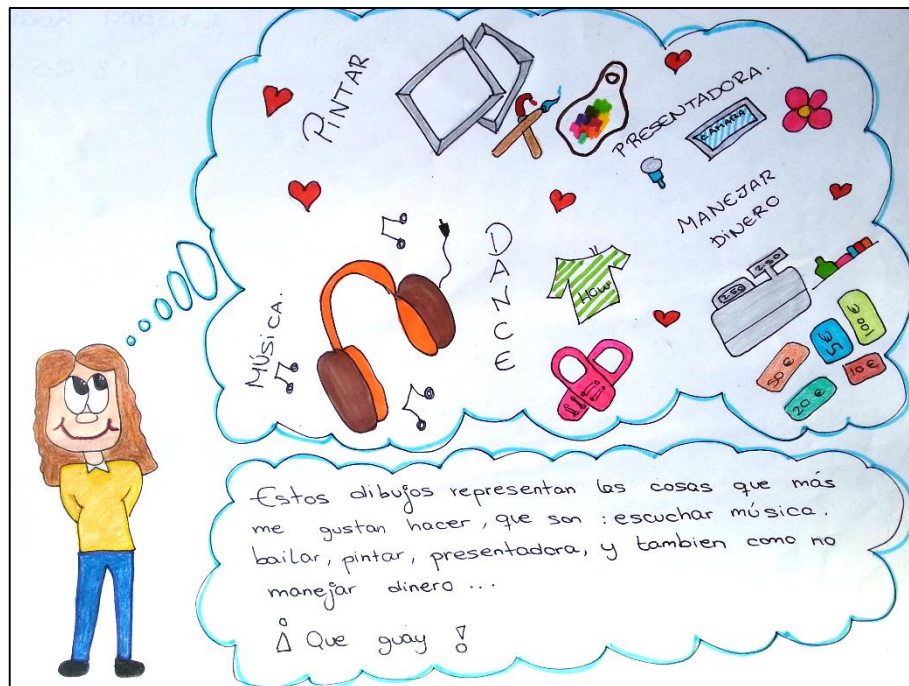 PINTAR
PRESENTADORA.
CAMARA
MANEJAR
DINERO
DANCE
HOW
MÚSICA.
250
250
100€
5€
50€
10€
20€
Estos dibujos representan las cosas que más
me gustan hacer, que son : escuchar música.
bailar, pintar, presentadora, y tambien como no
manejar dinero ...
¡ Que guay !